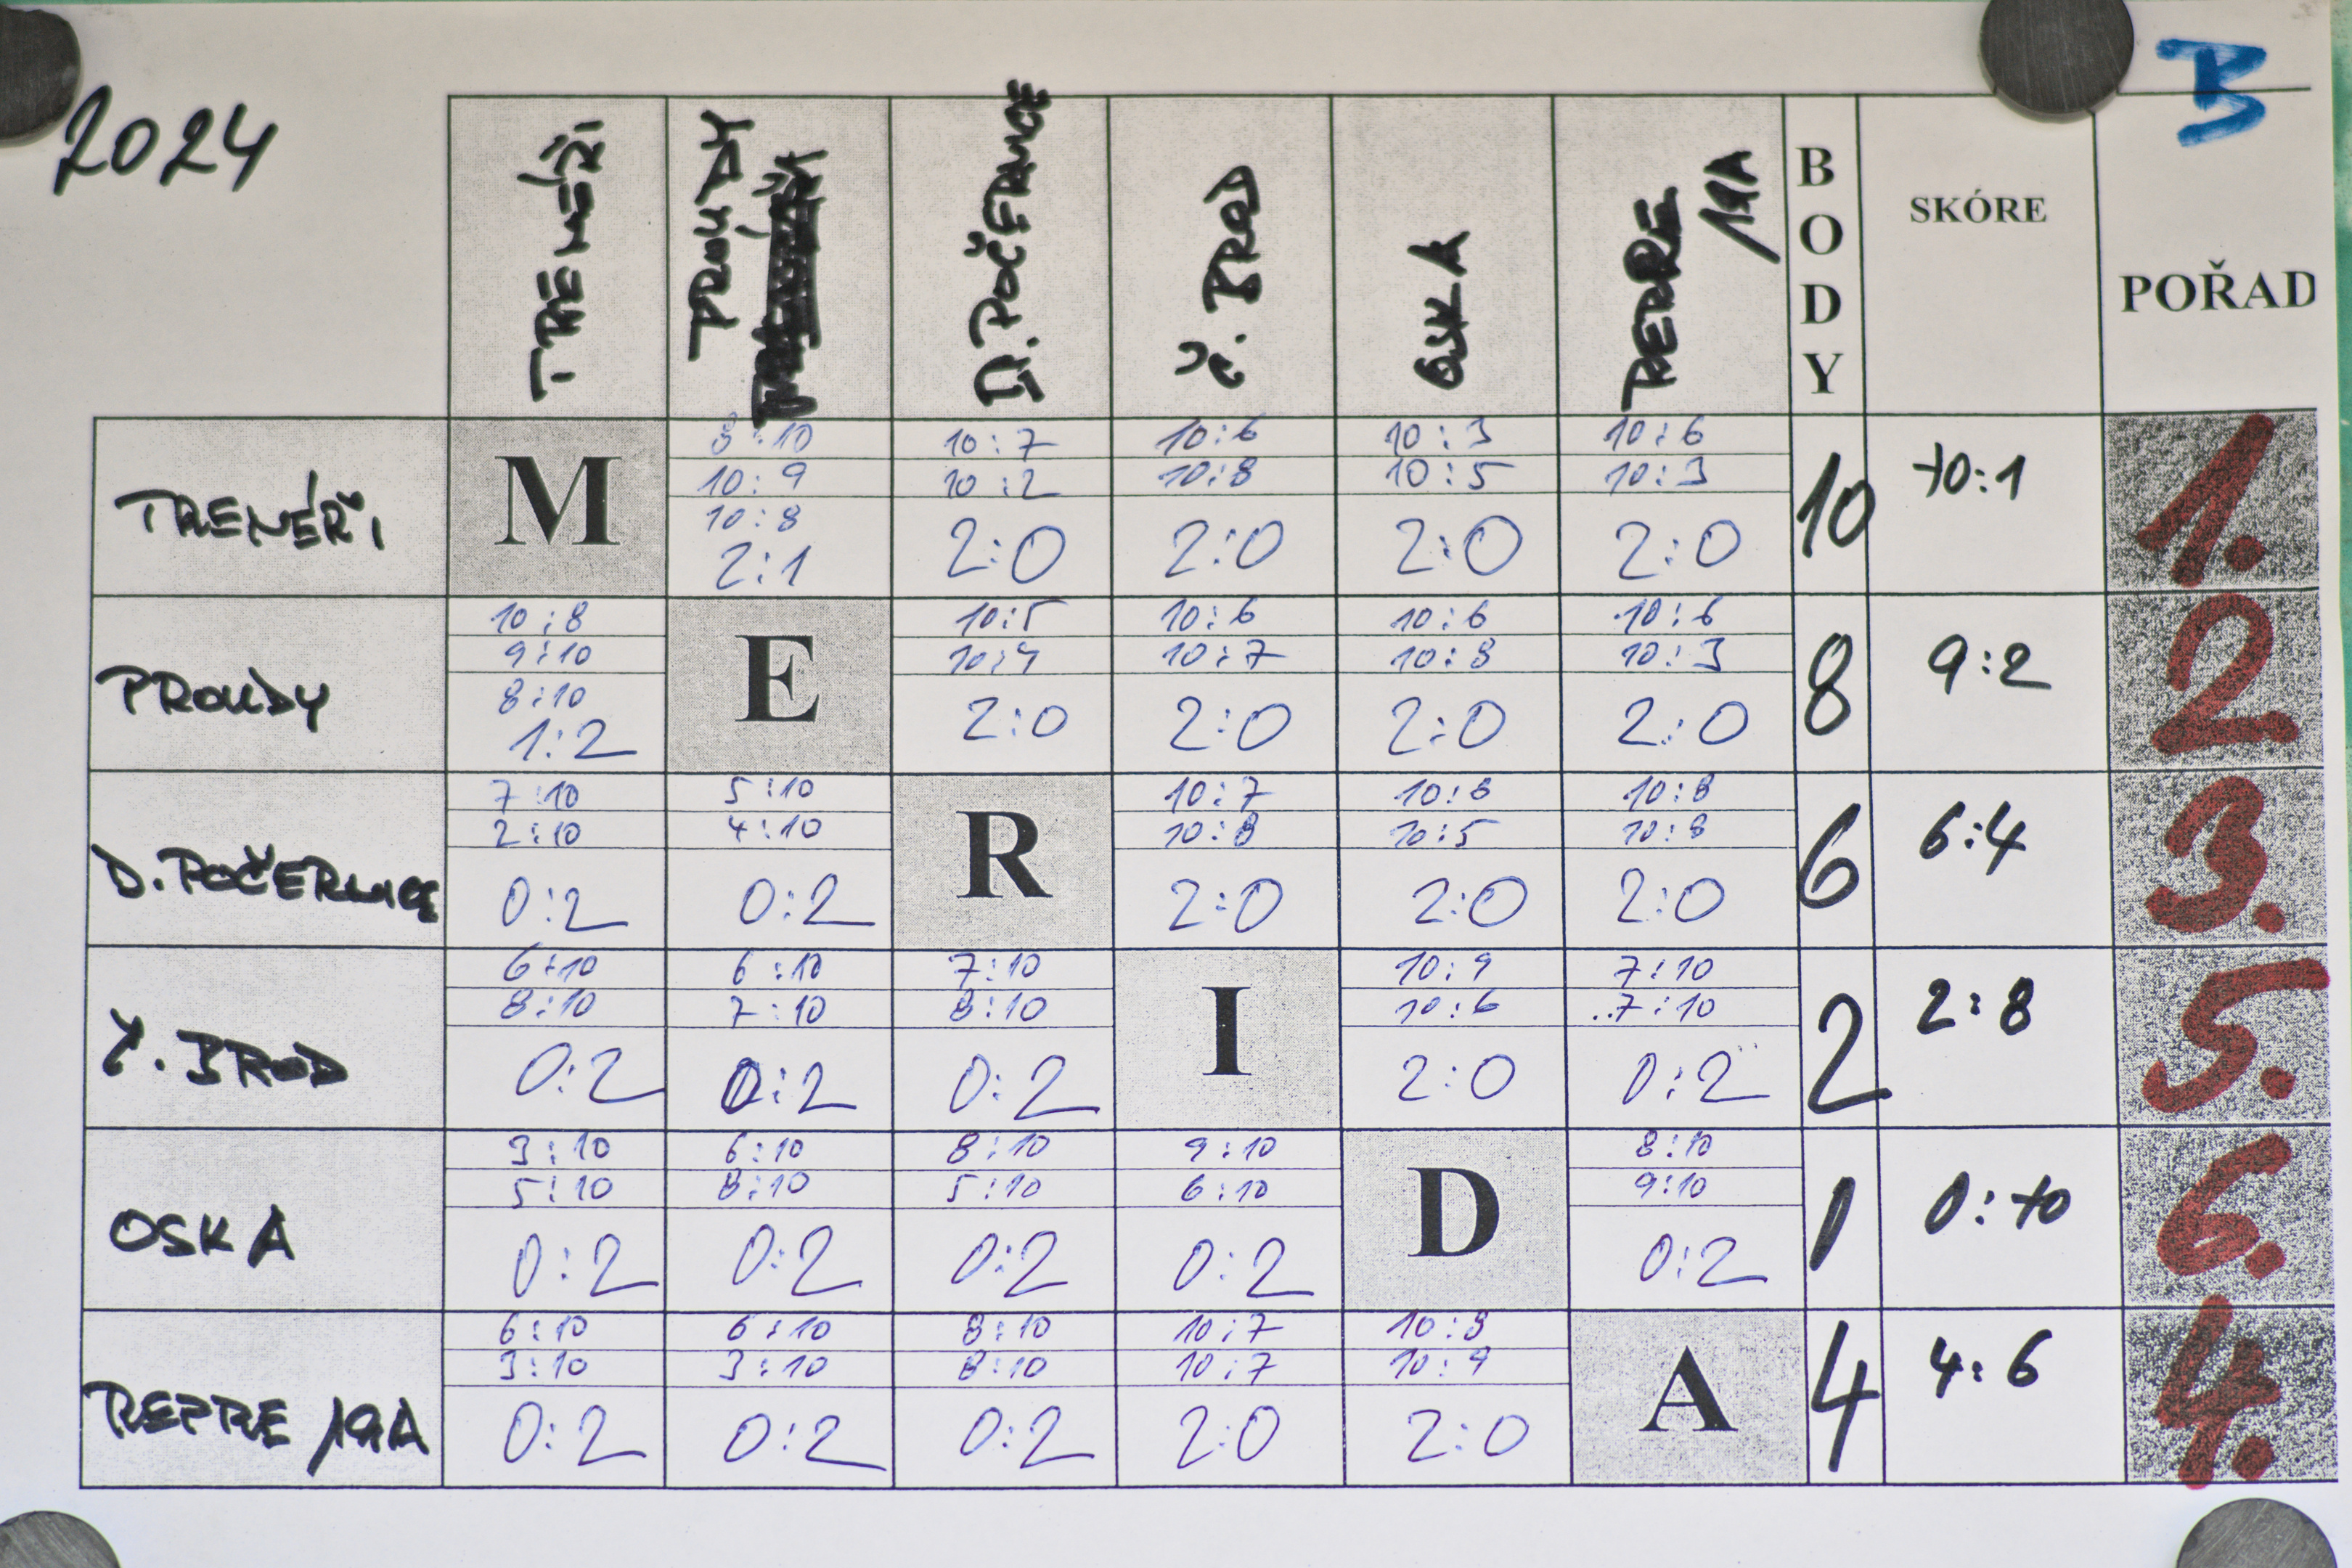 2024
B
TRENÉŘI
PROUDY
D. POČERNICE
Č. BROD
OSKA
REPRE 19A
BODY
SKÓRE
POŘAD
TRENÉŘI
M
8:10
10:9
10:8
2:1
10:7
10:2
2:0
10:6
10:8
2:0
10:3
10:5
2:0
10:6
10:3
2:0
10
10:1
1.
PROUDY
10:8
9:10
8:10
1:2
E
10:5
10:4
2:0
10:6
10:7
2:0
10:6
10:8
2:0
10:6
10:3
2:0
8
9:2
2
D. POČERNICE
7:10
2:10
0:2
5:10
4:10
0:2
R
10:7
10:8
2:0
10:8
10:5
2:0
10:8
10:8
2:0
6
6:4
3.
Č. BROD
6:10
8:10
0:2
6:10
7:10
0:2
7:10
8:10
0:2
I
10:9
10:6
2:0
7:10
7:10
0:2
2
2:8
5.
OSKA
3:10
5:10
0:2
6:10
8:10
0:2
8:10
5:10
0:2
9:10
6:10
0:2
D
8:10
9:10
0:2
0:10
6.
REPRE 19A
6:10
3:10
0:2
6:10
3:10
0:2
8:10
8:10
0:2
10:7
10:7
2:0
10:8
10:9
2:0
A
4
4:6
4.